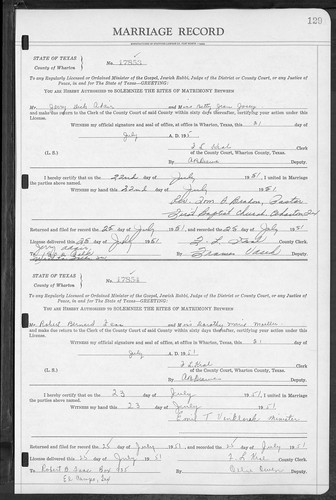 129
MARRIAGE RECORD
STATE OF TEXAS
County of Wharton
No. 17853
To any Regularly Licensed or Ordained Minister of the Gospel, Jewish Rabbi, Judge of the District or County Court, or any Justice of
Peace, in and for the State of Texas—GREETING:
YOU ARE HEREBY AUTHORIZED TO SOLEMNIZE THE RITES OF MATRIMONY BETWEEN
Mr. Jerry and Miss Betty Jean
and make due return to the Clerk of the County Court of said County within sixty days thereafter, certifying your action under this
License.
WITNESS my official signature and seal of office, at office in Wharton, Texas, this 21 day of
July A. D. 195
(L. S.) County Clerk
By Deputy.
I hereby certify that on the 22nd day of July 1951, I united in marriage
the parties above named.
WITNESS my hand this 22nd day of July 1951
Rev. Tom Pastor
First Baptist Church, Tex
Returned and filed for record the 25 day of July 1951, and recorded the 25 day of July 1951
License delivered this 25 day of July 1951
To Jerry By Frances Deputy
STATE OF TEXAS
County of Wharton
No. 17854
To any Regularly Licensed or Ordained Minister of the Gospel, Jewish Rabbi, Judge of the District or County Court, or any Justice of
Peace, in and for the State of Texas—GREETING:
YOU ARE HEREBY AUTHORIZED TO SOLEMNIZE THE RITES OF MATRIMONY BETWEEN
Mr. Robert Bernard and Miss Dorothy Marie
and make due return to the Clerk of the County Court of said County within sixty days thereafter, certifying your action under this
License.
WITNESS my official signature and seal of office, at office in Wharton, Texas, this 21 day of
July A. D. 1951
(L. S.) County Clerk
By Deputy.
I hereby certify that on the 23 day of July 1951, I united in marriage
the parties above named.
WITNESS my hand this 23 day of July 1951
Emil T. Minister
Returned and filed for record the 25 day of July 1951, and recorded the 25 day of July 1951
License delivered this day of 1951
To Robert B. Box By Deputy
El Campo, Tex